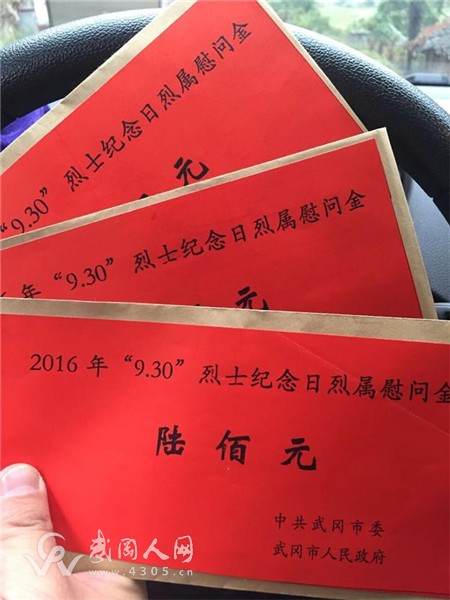 “9.30” 烈士纪念日烈属慰问金
元
年 “9.30” 烈士纪念日烈属慰问金
元
2016 年 “9.30” 烈士纪念日烈属慰问金
陆佰元
中共武冈市委
武冈市人民政府
武冈人网
www.4305.cn